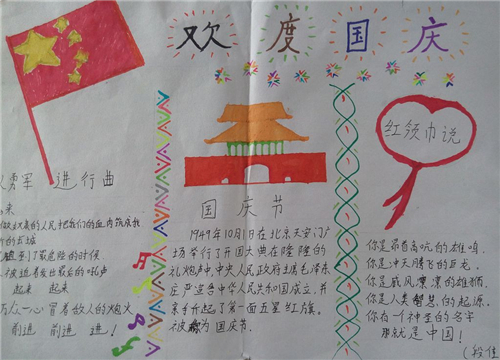 欢度国庆
红领巾说
勇军 进行曲
来
做奴隶的人民把我们的血肉筑成我
的长城
到了最危险的时候
被迫着发出最后的吼声
起来 起来
万众一心冒着敌人的炮火
前进 前进 进!
国庆节
1949年10月1日在北京天安门广
场举行了开国大典在隆隆的
礼炮声中,中央人民政府主席毛泽东
庄严宣告中华人民共和国成立,并
亲手升起了第一面五星红旗。
被称为国庆节。
你是昂首高吭的雄鸡,
你是冲天腾飞的巨龙,
你是威风凛凛的雄狮,
你是人类智慧的起源,
你有一个神圣的名字
那就是中国!